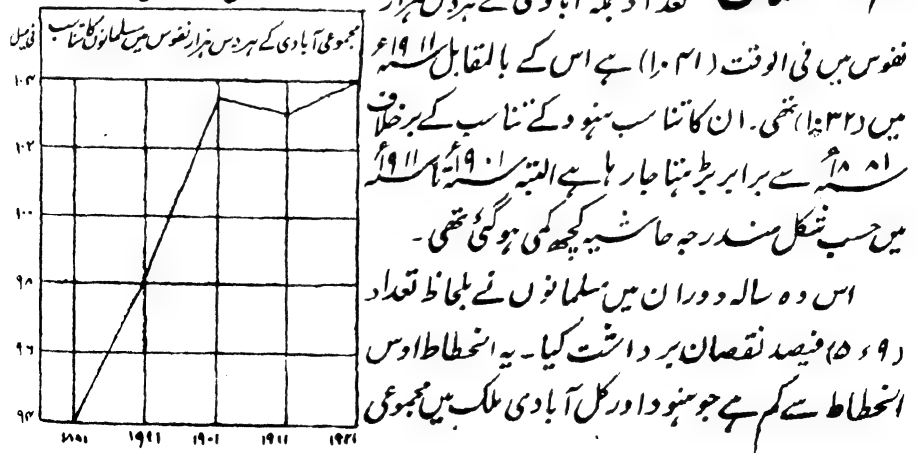 تعداد منجملہ آبادی کے ہر دس ہزار
نفوس میں فی الوقت (۱۰۴۱) ہے اس کے بالمقابل سنہ ۱۹۱۱ء
میں (۱۰۳۲) تھی۔ ان کا تناسب ہنود کے تناسب کے برخلاف
سنہ ۱۸۸۱ء سے برابر بڑہتا جا رہا ہے البتہ سنہ ۱۹۰۱ء تا سنہ ۱۹۱۱ء
میں حسب شکل مندرجہ حاشیہ کچھ کمی ہوگئی تھی۔
اس دہ سالہ دوران میں مسلمانوں نے بلحاظ تعداد
(۹ء۵) فیصد نقصان برداشت کیا۔ یہ انحطاط اوس
انحطاط سے کم ہے جو ہنود اور کل آبادی ملک میں مجموعی
مجموعی آبادی کے ہر دس ہزار نفوس میں مسلمانوں کا تناسب
فی میل
۱۰۴
۱۰۲
۱۰۰
۹۸
۹۶
۹۴
۱۸۸۱ ۱۸۹۱ ۱۹۰۱ ۱۹۱۱ ۱۹۲۱